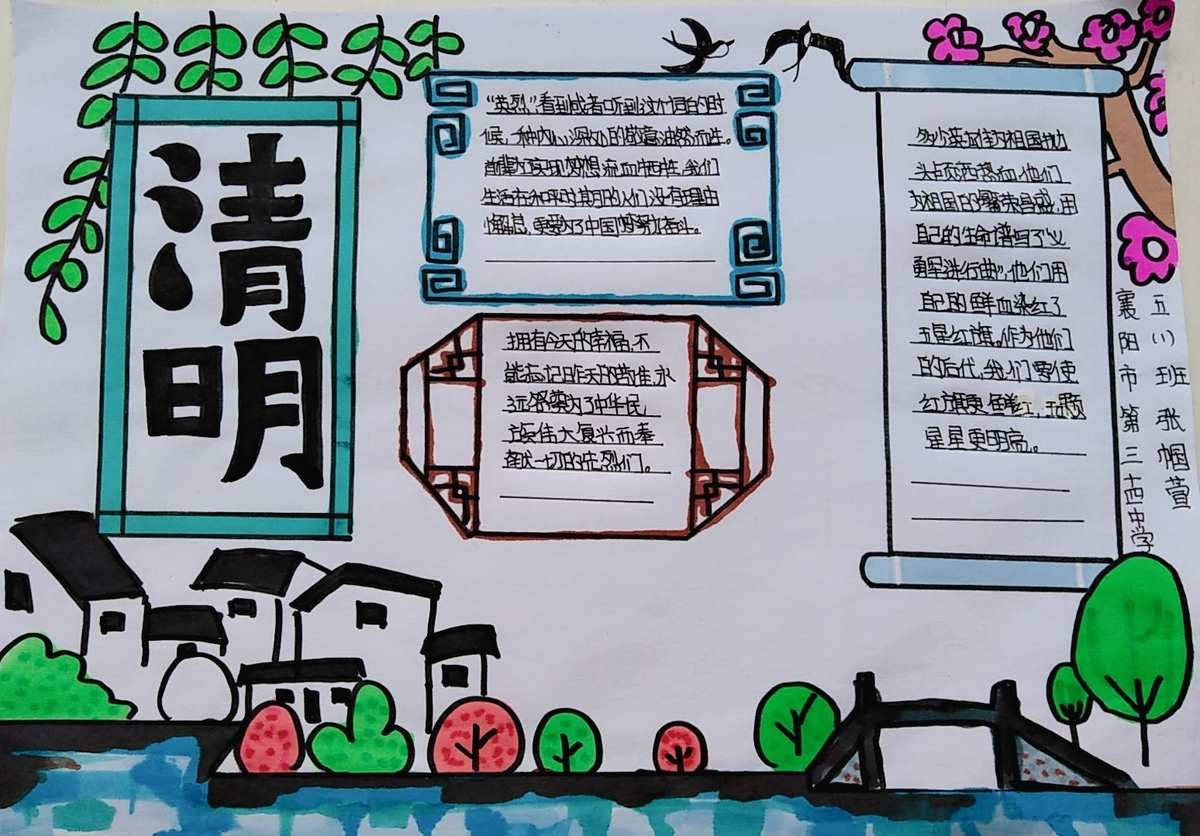 清明
"英烈",看到或者听到这个词的时
候,一种内心深处的敬意油然而生。
前辈为实现梦想流血牺牲,我们
生活在和平时期的人们没有理由
懈怠,更要为了中国梦努力奋斗。
拥有今天的幸福,不
能忘记昨天的苦难,永
远缅怀为了中华民
族伟大复兴而奉
献一切的先烈们。
多少英雄为祖国抛
头颅洒热血,他们
为祖国的繁荣昌盛,用
自己的生命谱写了"义
勇军进行曲",他们用
自己的鲜血染红了
五星红旗,作为他们
的后代,我们要使
红旗更鲜红,五颗
星星更明亮。
襄阳市第三十四中学
五(1)班张帼萱